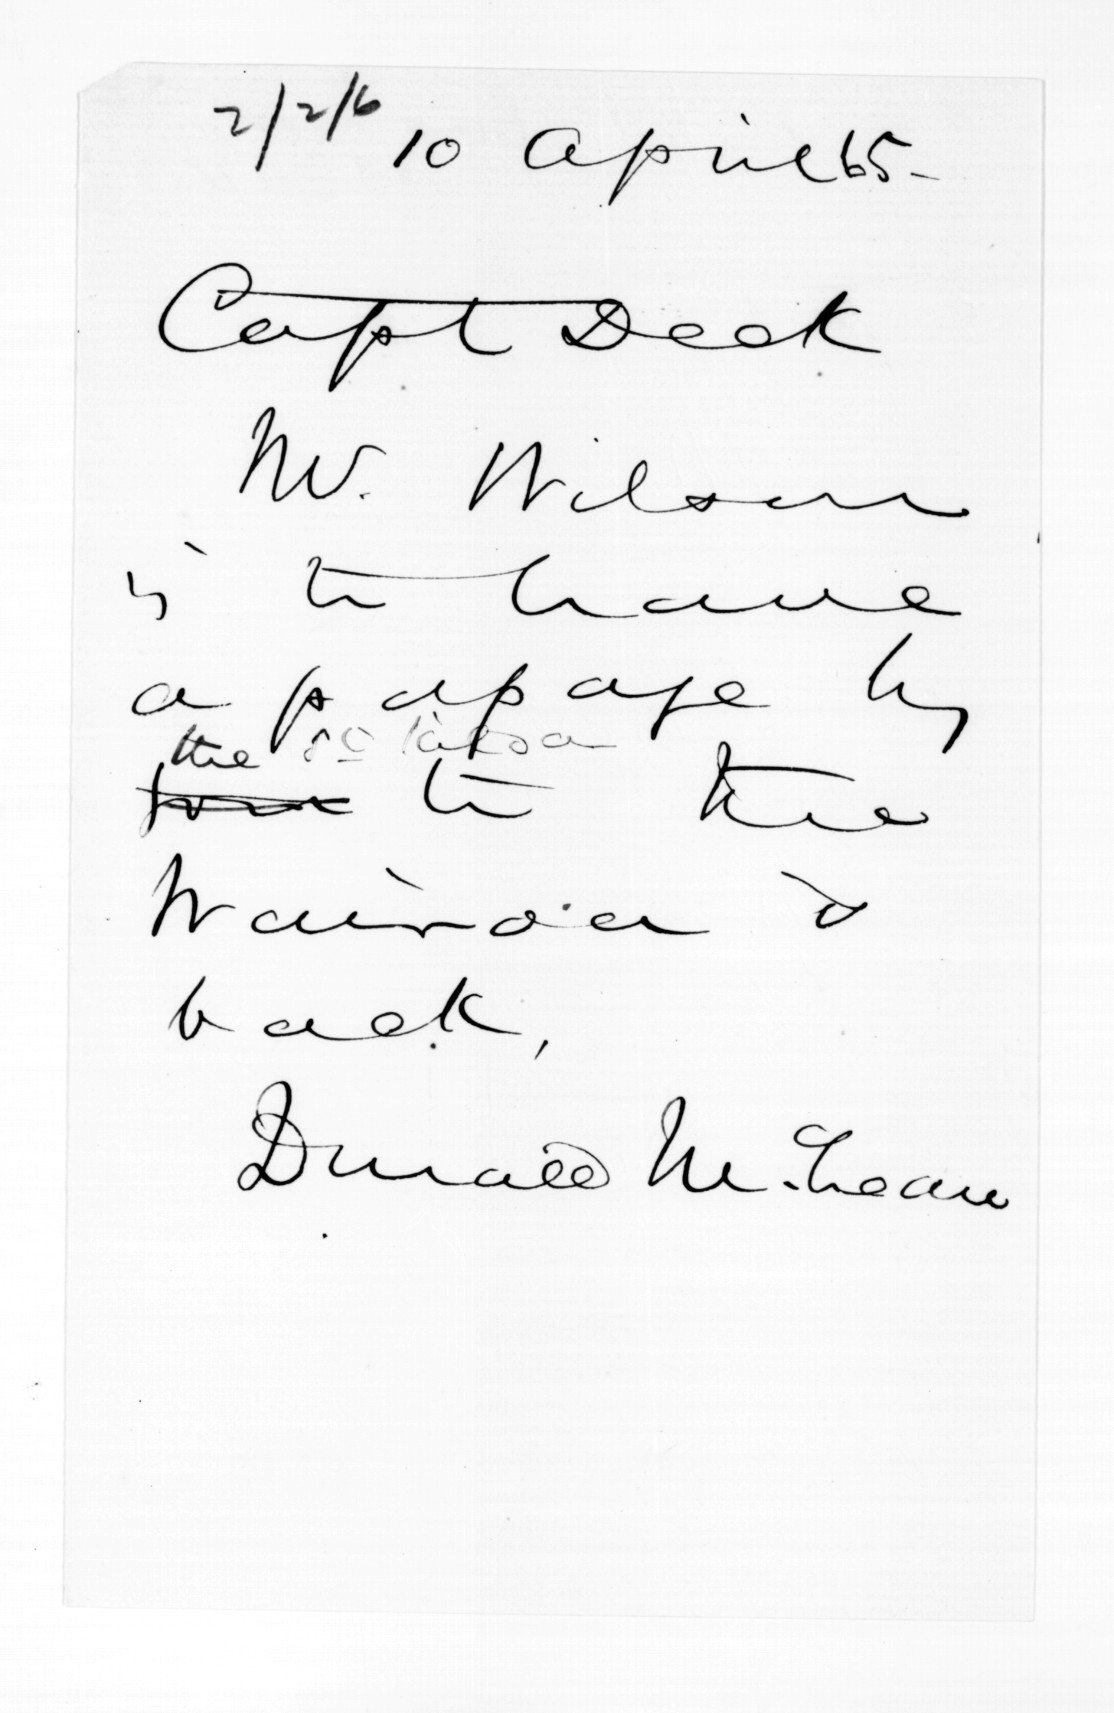 2/2/6
10 April 65-
Capt Deck
Mr. Wilson
is to have
a passage by
the
to the
Wairoa &
back,
Donald McLean